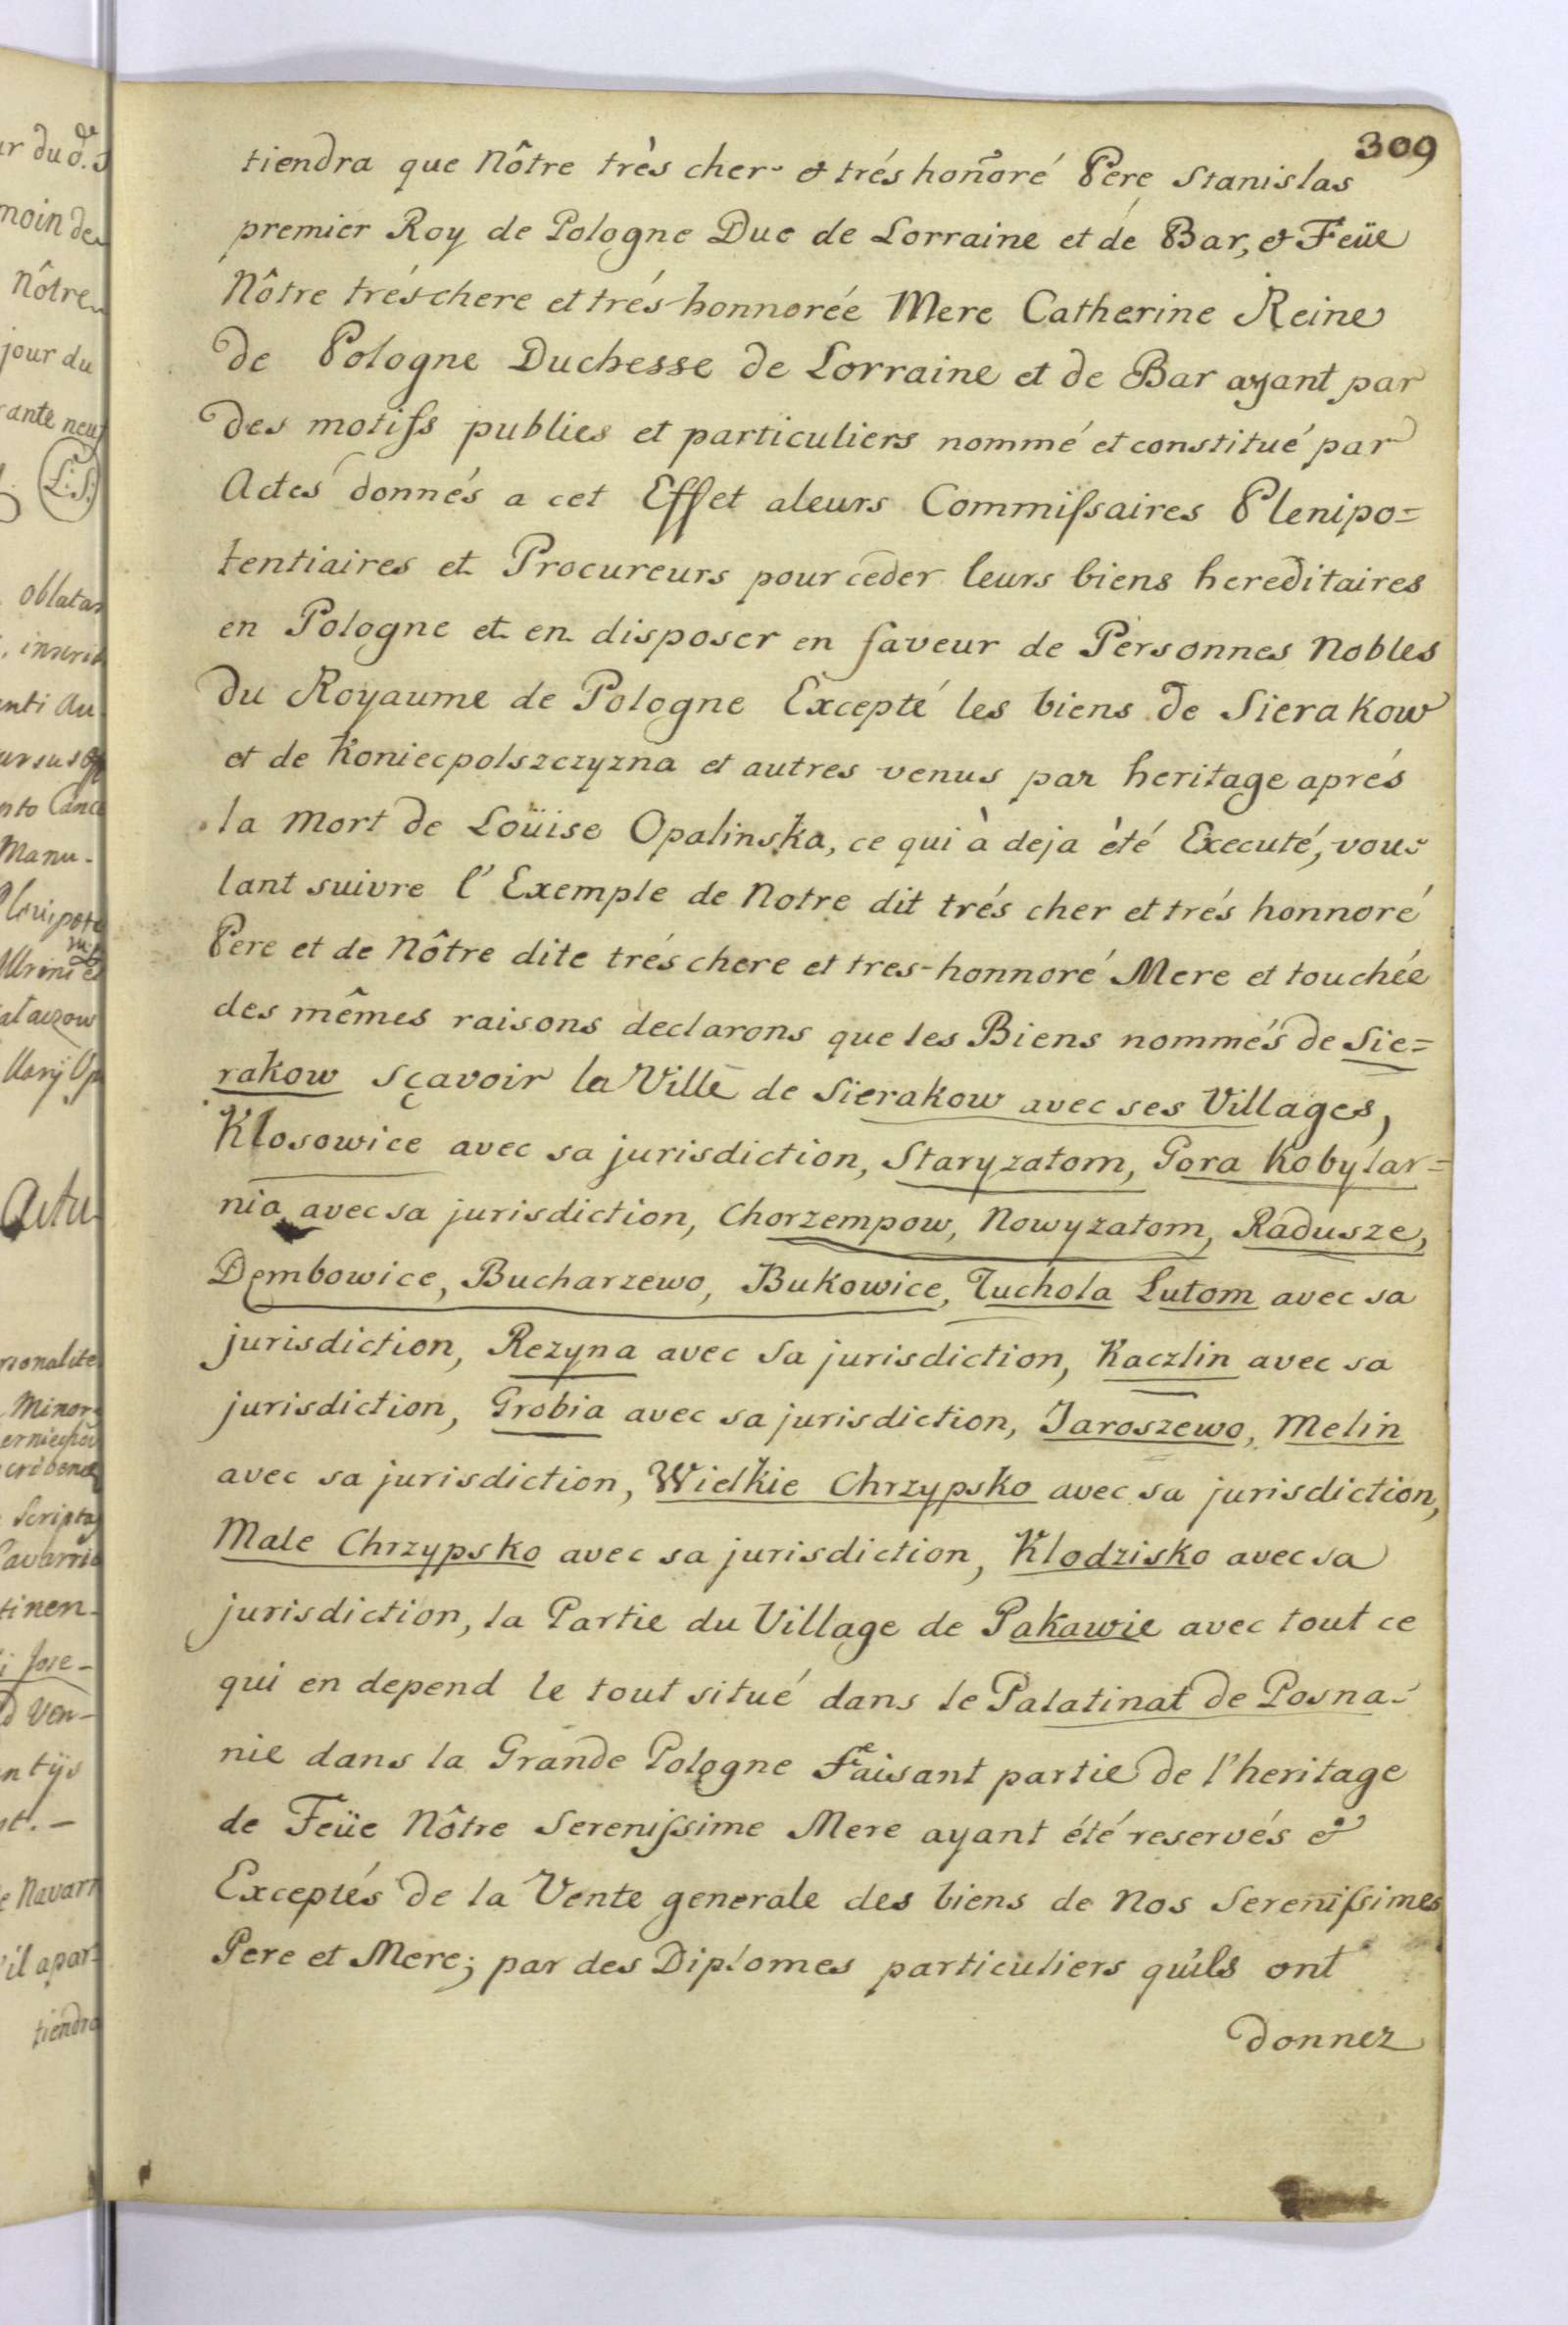 309
tiendra que Nôtre très cher & trés hoñoré Pere Stanislas
premier Roy de Pologne Duc de Lorraine et de Bar, & Feüe
Nôtre trés chere et trés honnorée Mere Catherine Reine
de Pologne Duchesse de Lorraine et de Bar ayant par
des motifs publics et particuliers nommé et constitué par
Actes donnés a cet Effet aleurs Commissaires Plenipo=
tentiaires et Procureurs pour ceder leurs biens hereditaires
en Pologne et en disposer en faveur de Personnes Nobles
du Royaume de Pologne Excepté les biens de Sierakow
et de Koniecpolszczyzna et autres venus par heritage aprés
la Mort de Loüise Opalinska, ce qui à deja èté Executé, vou-
lant suivre l'Exemple de Notre dit trés cher et trés honnoré
Pere et de Nôtre dite trés chere et tres-honnoré Mere et touchée
des mêmes raisons declarons que les Biens nommés de Sie=
rakow sçavoir la Ville de Sierakow avec ses Villages,
Klosowice avec sa jurisdiction, Staryzatom, Gora Kobylar=
nia avec sa jurisdiction, Chorzempow, Nowyzatom, Radusze,
Dembowice, Bucharzewo, Bukowice, Tuchola Lutom avec sa
jurisdiction, Rezyna avec sa jurisdiction, Kaczlin avec sa
jurisdiction, Grobia avec sa jurisdiction, Jaroszewo, Melin
avec sa jurisdiction, Wielkie Chrzypsko avec sa jurisdiction,
Male Chrzypsko avec sa jurisdiction, Klodzisko avec sa
jurisdiction, la Partie du Village de Pakawie avec tout ce
qui en depend le tout situé dans le Palatinat de Posna-
nie dans la Grande Pologne Faisant partie de l'heritage
de Feüe Nôtre Serenissime Mere ayant été reservés &
Exceptés de la Vente generale des biens de Nos Serenissimes
Pere et Mere; par des Diplomes particuliers qu'ils ont
donnez